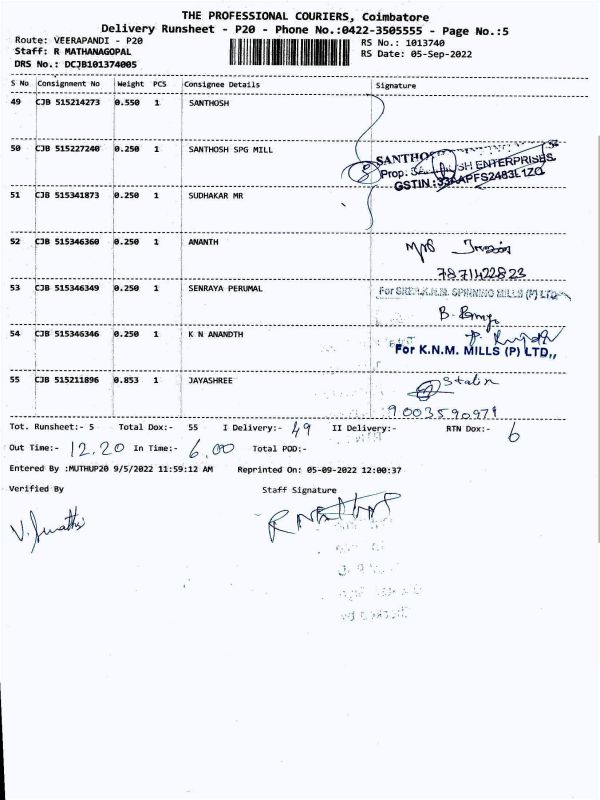 THE PROFESSIONAL COURIERS, Coimbatore
Delivery Runsheet - P20 - Phone No.:0422-3505555 - Page No.:5
Route: VEERAPANDI - P20 RS No.: 1013740
Staff: R MATHANAGOPAL RS Date: 05-Sep-2022
DRS No.: DCJB101374005
S No Consignment No Weight PCS Consignee Details Signature
49 CJB 515214273 0.550 1 SANTHOSH
50 CJB 515227240 0.250 1 SANTHOSH SPG MILL
SANTHO
Prop. SH ENTERPRISES
GSTIN:33AAPFS2483L1ZO
51 CJB 515341873 0.250 1 SUDHAKAR MR
52 CJB 515346360 0.250 1 ANANTH
7871422823
53 CJB 515346349 0.250 1 SENRAYA PERUMAL
SPINNING MILLS (P) LTD
54 CJB 515346346 0.250 1 K N ANANDTH
For K.N.M. MILLS (P) LTD.,
55 CJB 515211896 0.853 1 JAYASHREE
Stalin
9003590971
Tot. Runsheet:- 5 Total Dox:- 55 I Delivery:- 49 II Delivery:- RTN Dox:- 6
Out Time:- 12.20 In Time:- 6.00 Total POD:-
Entered By :MUTHUP20 9/5/2022 11:59:12 AM Reprinted On: 05-09-2022 12:00:37
Verified By Staff Signature